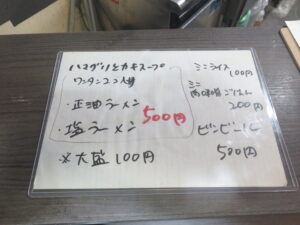 ハマグリとカキスープ
ワンタン2コ入り
・正油ラーメン
・塩ラーメン
500円
※大盛100円
ミニライス
100円
ミニ
肉味噌ごはん
200円
ビンビール
500円